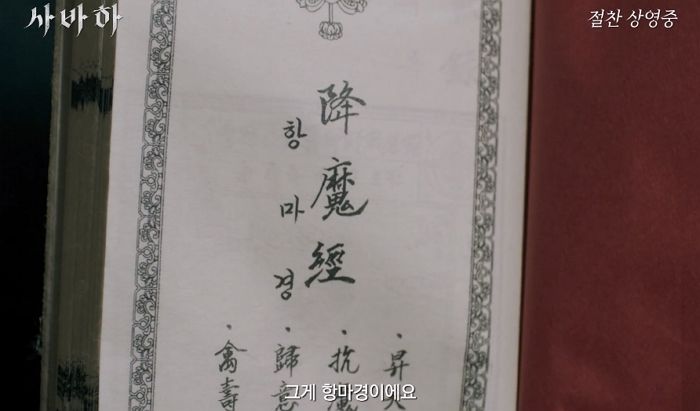 사바하
절찬 상영중
降魔經
항마경
· 昇
· 抗
· 歸意
· 禽壽
그게 항마경이에요